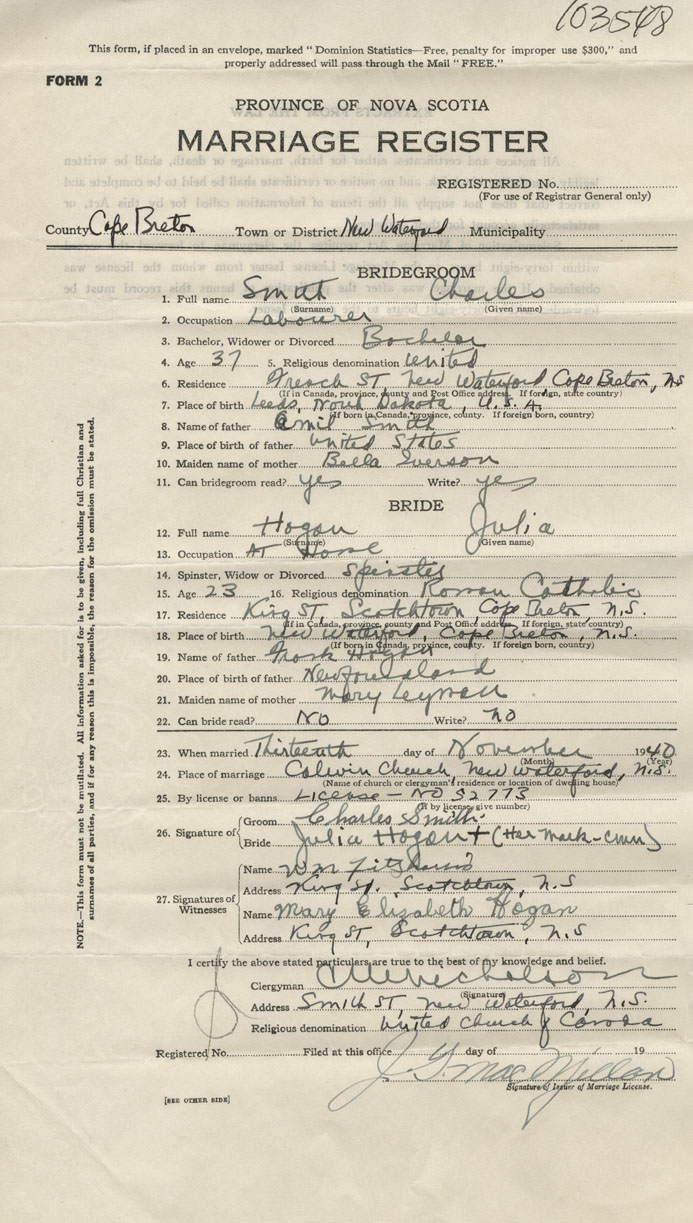 103548
This form, if placed in an envelope, marked "Dominion Statistics—Free, penalty for improper use $300," and
properly addressed will pass through the Mail "FREE."
FORM 2
PROVINCE OF NOVA SCOTIA
MARRIAGE REGISTER
REGISTERED No.
(For use of Registrar General only)
County Cape Breton Town or District New Waterford Municipality
BRIDEGROOM
1. Full name Smith Charles
(Surname) (Given name)
2. Occupation Labourer
3. Bachelor, Widower or Divorced Bachelor
4. Age 37 5. Religious denomination United
6. Residence French ST, New Waterford Cape Breton, NS
(If in Canada, province, county and Post Office address. If foreign, state country)
7. Place of birth Leeds, North Dakota, U.S.A.
(If born in Canada, province, county. If foreign born, country)
8. Name of father Emil Smith
9. Place of birth of father United States
10. Maiden name of mother Bella Iverson
11. Can bridegroom read? yes Write? yes
BRIDE
12. Full name Hogan Julia
(Surname) (Given name)
13. Occupation AT Home
14. Spinster, Widow or Divorced Spinster
15. Age 23 16. Religious denomination Roman Catholic
17. Residence King ST, Scotchtown Cape Breton N.S.
(If in Canada, province, county and Post Office address. If foreign, state country)
18. Place of birth New Waterford, Cape Breton, N.S.
(If born in Canada, province, county. If foreign born, country)
19. Name of father Frank Hogan
20. Place of birth of father Newfoundland
21. Maiden name of mother Mary
22. Can bride read? NO Write? NO
23. When married Thirteenth day of November 1940
(Month) (Year)
24. Place of marriage Calvin Church, New Waterford, N.S.
(Name of church or clergyman's residence or location of dwelling house)
25. By license or banns License — NO 52773
(If by license give number)
26. Signature of Groom Charles Smith
Bride Julia Hogan + (Her Mark-CMN)
27. Signatures of Witnesses
Name Wm Fitzharris
Address King St. Scotchtown, N.S
Name Mary Elizabeth Hogan
Address King ST, Scotchtown, N.S
I certify the above stated particulars are true to the best of my knowledge and belief.
Clergyman CM Nicholson
(Signature)
Address Smith ST, New Waterford, N.S.
Religious denomination United Church of Canada
Registered No. Filed at this office day of 19
J. G. MacMillan
Signature of Issuer of Marriage License.
[SEE OTHER SIDE]
NOTE.—This form must not be mutilated. All information asked for is to be given, including full Christian and
surnames of all parties, and if for any reason this is impossible, the reason for the omission must be stated.